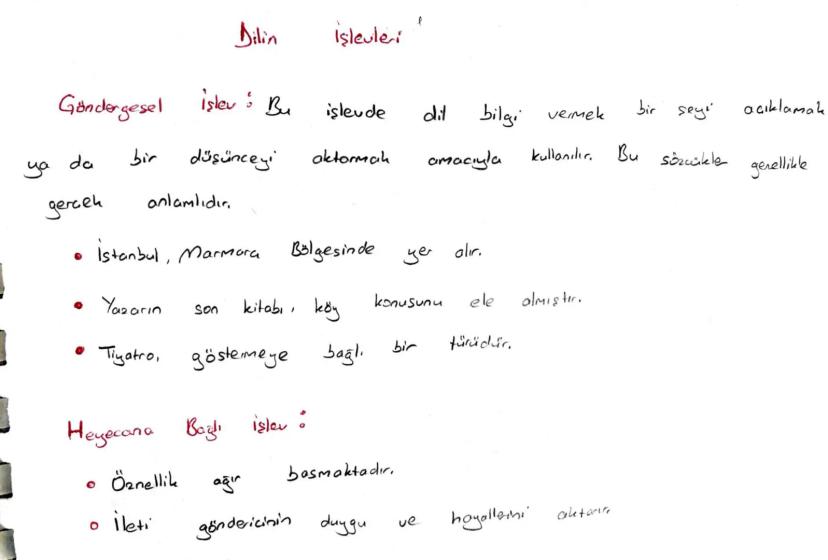 Dilin işlevleri
Göndergesel İşlev: Bu işlevde dil bilgi vermek bir şeyi açıklamak
ya da bir düşünceyi aktarmak amacıyla kullanılır. Bu sözcükler genellikle
gerçek anlamlıdır.
• İstanbul, Marmara Bölgesinde yer alır.
• Yazarın son kitabı, köy konusunu ele almıştır.
• Tiyatro, göstermeye bağlı bir türüdür.
Heyecana Bağlı işlev:
• Öznellik ağır basmaktadır.
• İleti göndericinin duygu ve hayallerini aktarır.